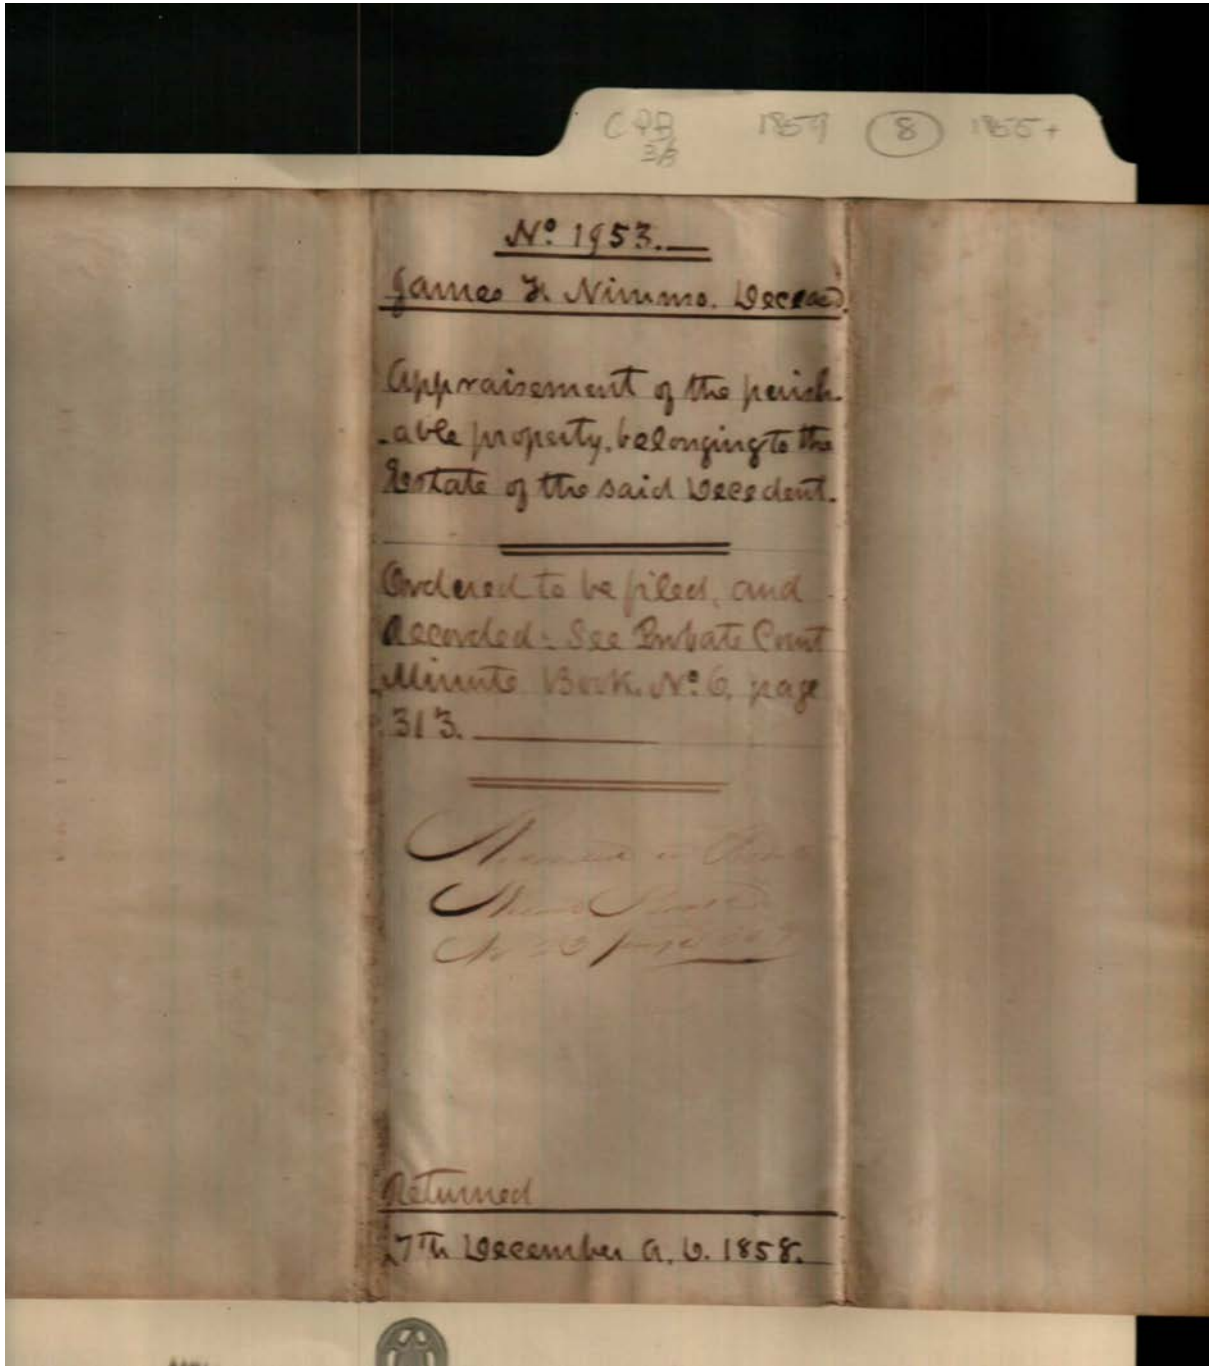 CPB 1859 8 1855+
3B
No. 1953.
James F. Nimmo. Deceased.
Appraisement of the perish-
-able property, belonging to the
Estate of the said Decedent.
Ordered to be filed, and
Recorded: See Probate Court
Minute Book. No. 6, page
313.
Returned
27th December A.D. 1858.